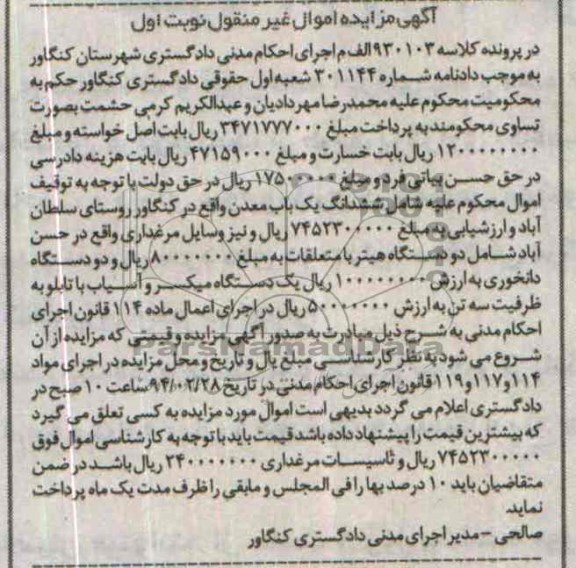 آگهی مزایده اموال غیر منقول نوبت اول
در پرونده کلاسه ۹۳۰۱۰۳ الف م اجرای احکام مدنی دادگستری شهرستان کنگاور
به موجب دادنامه شماره ۳۰۱۱۴۴ شعبه اول حقوقی دادگستری کنگاور حکم به
محکومیت محکوم علیه محمدرضا مهردادیان و عبدالکریم کرمی حشمت بصورت
تساوی محکومند به پرداخت مبلغ ۳۴۷۱۷۷۷۰۰۰ ریال بابت اصل خواسته و مبلغ
۱۲۰۰۰۰۰۰۰۰ ریال بابت خسارت و مبلغ ۴۷۱۵۹۰۰۰ ریال بابت هزینه دادرسی
در حق حسن بیاتی فرد و مبلغ ریال در حق دولت با توجه به توقیف
اموال محکوم علیه شامل ششدانگ یک باب معدن واقع در کنگاور روستای سلطان
آباد و ارزشیابی به مبلغ ۷۴۵۲۳۰۰۰۰۰ ریال و نیز وسایل مرغداری واقع در حسن
آباد شامل دو دستگاه هیتر با متعلقات به مبلغ ۸۰۰۰۰۰۰۰ ریال و دو دستگاه
دانخوری به ارزش ۱۰۰۰۰۰۰۰۰ ریال یک دستگاه میکسر و آسیاب با تابلو به
ظرفیت سه تن به ارزش ۵۰۰۰۰۰۰۰ ریال در اجرای اعمال ماده ۱۱۴ قانون اجرای
احکام مدنی به شرح ذیل مبادرت به صدور آگهی مزایده و قیمتی که مزایده از آن
شروع می شود به نظر کارشناسی مبلغ یال و تاریخ و محل مزایده در اجرای مواد
۱۱۴ و ۱۱۷ و ۱۱۹ قانون اجرای احکام مدنی در تاریخ ۹۴/۰۲/۲۸ ساعت ۱۰ صبح در
دادگستری اعلام می گردد بدیهی است اموال مورد مزایده به کسی تعلق می گیرد
که بیشترین قیمت را پیشنهاد داده باشد قیمت باید با توجه به کارشناسی اموال فوق
۷۴۵۲۳۰۰۰۰۰ ریال و تاسیسات مرغداری ۲۴۰۰۰۰۰۰۰ ریال باشد در ضمن
متقاضیان باید ۱۰ درصد بها را فی المجلس و مابقی را ظرف مدت یک ماه پرداخت
نماید.
صالحی - مدیر اجرای مدنی دادگستری کنگاور
ParsNamadData